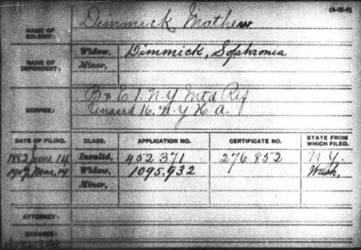 (3-0
NAME OF SOLDIER: Dimmick Mathew
NAME OF DEPENDENT: Widow, Dimmick, Sophronia
Minor,
SERVICE: B & E 1. N.Y. Mtd Rif
Unas'd 16. N.Y. H.A.
DATE OF FILING. CLASS. APPLICATION NO. CERTIFICATE NO. STATE FROM WHICH FILED.
1882 June 14 Invalid, 452.371 276.852 N.Y.
Mar. 14 Widow, 1095.932 Wash.
Minor,
ATTORNEY:
REMARKS: